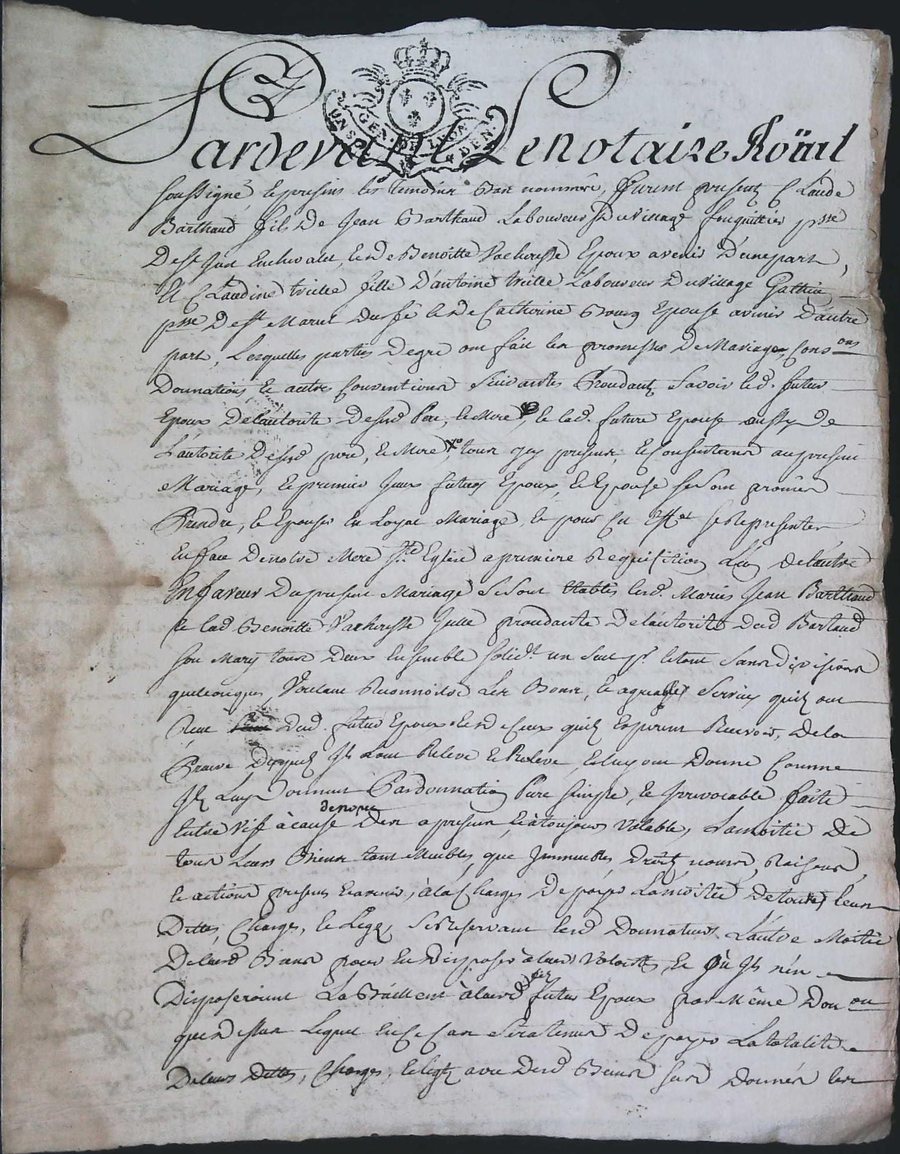 Pardevant Le notaire Royal
GEN. DE LYON
UN S. 4 DEN.
soussigné et presens les temoins bas nommés, furent presens Claude
Barthaud fils de Jean Barthaud Laboureur du village psse
De st Just Enchevalet, et de Benoitte Vacheresse Epoux avenir d'une part,
Et Claudine trielle fille d'antoine trielle Laboureur du village Gathier
psse de st Marcel Durfé et de Catherine Bourg Epouse avenir d'autre
part, Lesquelles parties de gré ont fait les promesses de Mariage, Cons ons
Donnations, et autres Conventions suivantes Procedant savoir led. futur
Epoux de l'autorité desesd Pere, et Mere, et lad. future Epouse aussy de
L'autorité desesd pere, et Mere, tous icy presens, et Consentans au present
Mariage, et premier iceux futurs Epoux, et Epouse se sont promis
Prendre, et Epouser En Loyal Mariage, et pour cu Effet se Representer
En face denotre Mere Ste Eglise a premiere Requisition L'un de l'autre
En faveur Du present Mariage se sont Etablis lesd. Mariés Jean Barthaud
et lad Benoitte Vacheresse Icelle procedante de l'autorité dud Bartaud
son Mary tous deux Ensemble solidt un seul pr le tout sans division
quelconque, Voulant Reconnoitre Les Bons, et agreables services quils ont
Reçu dud. futur Epoux et de Ceux quils Esperent Recevoir, de la
Preuve desquels ils L'ont Relevé et Relevent, et luy ont Donné Comme
ils Luy Donnent Pardonnation Pure simple, et irrevocable faite
Entre Vif à cause de nopces des a present, et à toujours Valable, La moitié De
tous Leurs Biens tant Meubles, que Immeubles, droits noms, Raisons,
et actions presens et avenir, à la Charges De payer La moitié de toutes leurs
Dettes, Charges, et Legs, se Reservant lesd Donnateurs L'autre Moitié
De leurd Biens pour En disposer à leur Volonté, Et où ils n'en
Disposeroient La Baillent à leurd futur Epoux par Même Don on
que dessus Lequel En ce Cas sera tenu De payer La totalité
De leurs Dettes, Charges, et legs avec desd Biens sus donnés les